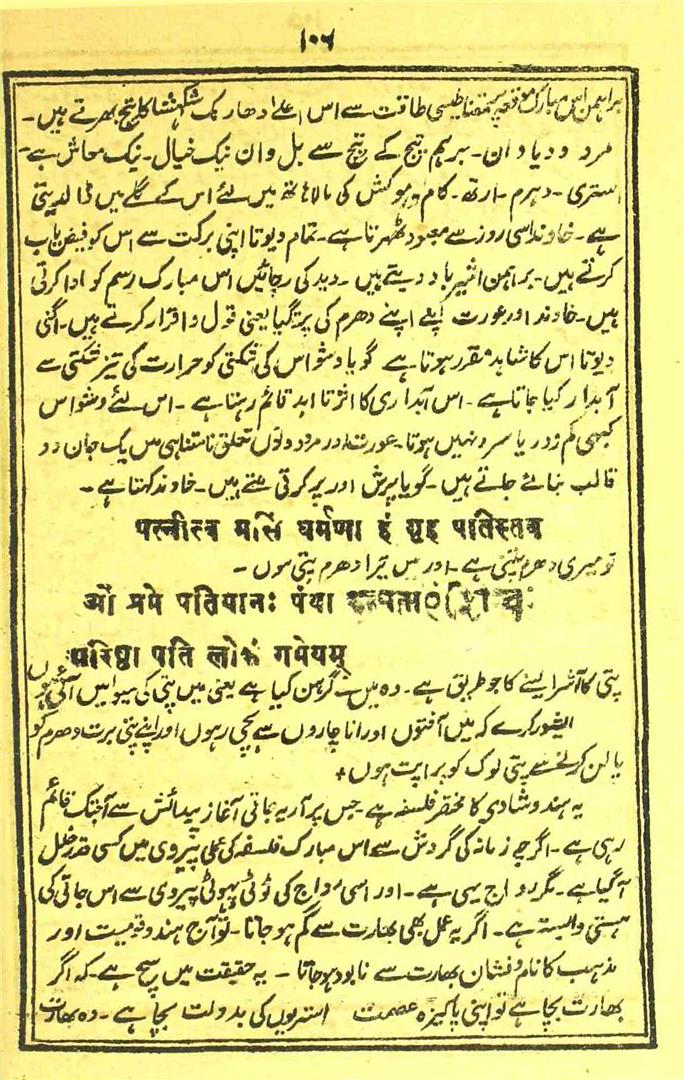 ۱۰۶
براہمن اس مبارک موقعہ پر مقناطیسی طاقت سے اس اعلےٰ دھارک کا تیج بھرتے ہیں۔
مرد ودیا دان۔ برہم تیج کے تیج سے بل وان نیک خیال۔ نیک معاش ہے۔
استری۔ دہرم۔ ارتھ۔ کام و موکش کی مالا ہاتھ میں لئے اس کے گلے میں ڈالدیتی
ہے۔ خاوند اسی روز سے معبود ٹھہرتا ہے۔ تمام دیوتا اپنی برکت سے اس کو فیض یاب
کرتے ہیں۔ براہمن اشیرباد دیتے ہیں۔ وید کی رچائیں اس مبارک رسم کو ادا کرتی
ہیں۔ خاوند اور عورت اپنے اپنے دھرم کی پرتگیا یعنی قول و اقرار کرتے ہیں۔ اگنی
دیوتا اس کا شاہد مقرر ہوتا ہے گویا وشواس کی شکتی کو حرارت کی تیز شکتی سے
آبدار کیا جاتا ہے۔ اس آبداری کا اثر تا ابد قائم رہتا ہے۔ اس لئے وشواس
کبھی کمزور یا سرد نہیں ہوتا۔ عورت اور مرد دونوں تعلق نامتناہی میں یک جان دو
قالب بنائے جاتے ہیں۔ گویا پرش اور پرکرتی بنتے ہیں۔ خاوند کہتا ہے۔
पत्नीत्व मसि धर्मणा हं गृह पतिस्तव
تو میری دھرم پتنی ہے۔ اور میں تیرا دھرم پتی ہوں۔
ओं प्रमे पतियानः पंथा
परिष्ठा पति लोकं गमेयम्
پتی کا آشرا لینے کا جو طریق ہے۔ وہ میں نے گرہن کیا ہے یعنی میں پتی کی سیوا میں آئی ہوں
ایشور کرے کہ میں آفتوں اور اناچاروں سے بچی رہوں اور اپنے پتی برت دھرم کو
پالن کرنے سے پتی لوک کو پراپت ہوں+
یہ ہندو شادی کا مختصر فلسفہ ہے۔ جس پر آریہ جاتی آغاز پیدائش سے آجتک قائم
رہی ہے۔ اگرچہ زمانہ کی گردش سے اس مبارک فلسفہ کی عملی پیروی میں کسی قدر خلل
آگیا ہے۔ مگر رواج یہی ہے۔ اور اسی رواج کی ٹوٹی پھوٹی پیروی سے اس جاتی کی
ہستی وابستہ ہے۔ اگر یہ عمل بھی بھارت سے گم ہو جاتا۔ تو آج ہندو قومیت اور
مذہب کا نام و نشان بھارت سے نابود ہو جاتا۔ یہ حقیقت میں سچ ہے۔ کہ اگر
بھارت بچا ہے تو اپنی پاکیزہ عصمت استریوں کی بدولت بچا ہے۔ وہ بھارت